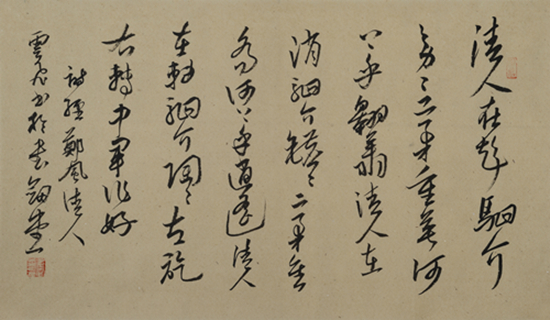 清人在彭駟介
旁〻二矛重英河
上乎翱翔清人在
消駟介鑣〻二矛重
喬河上乎逍遥清人
在軸駟介陶〻左旋
右中軍作好
詩經鄭風清人
雲書於書劍堂